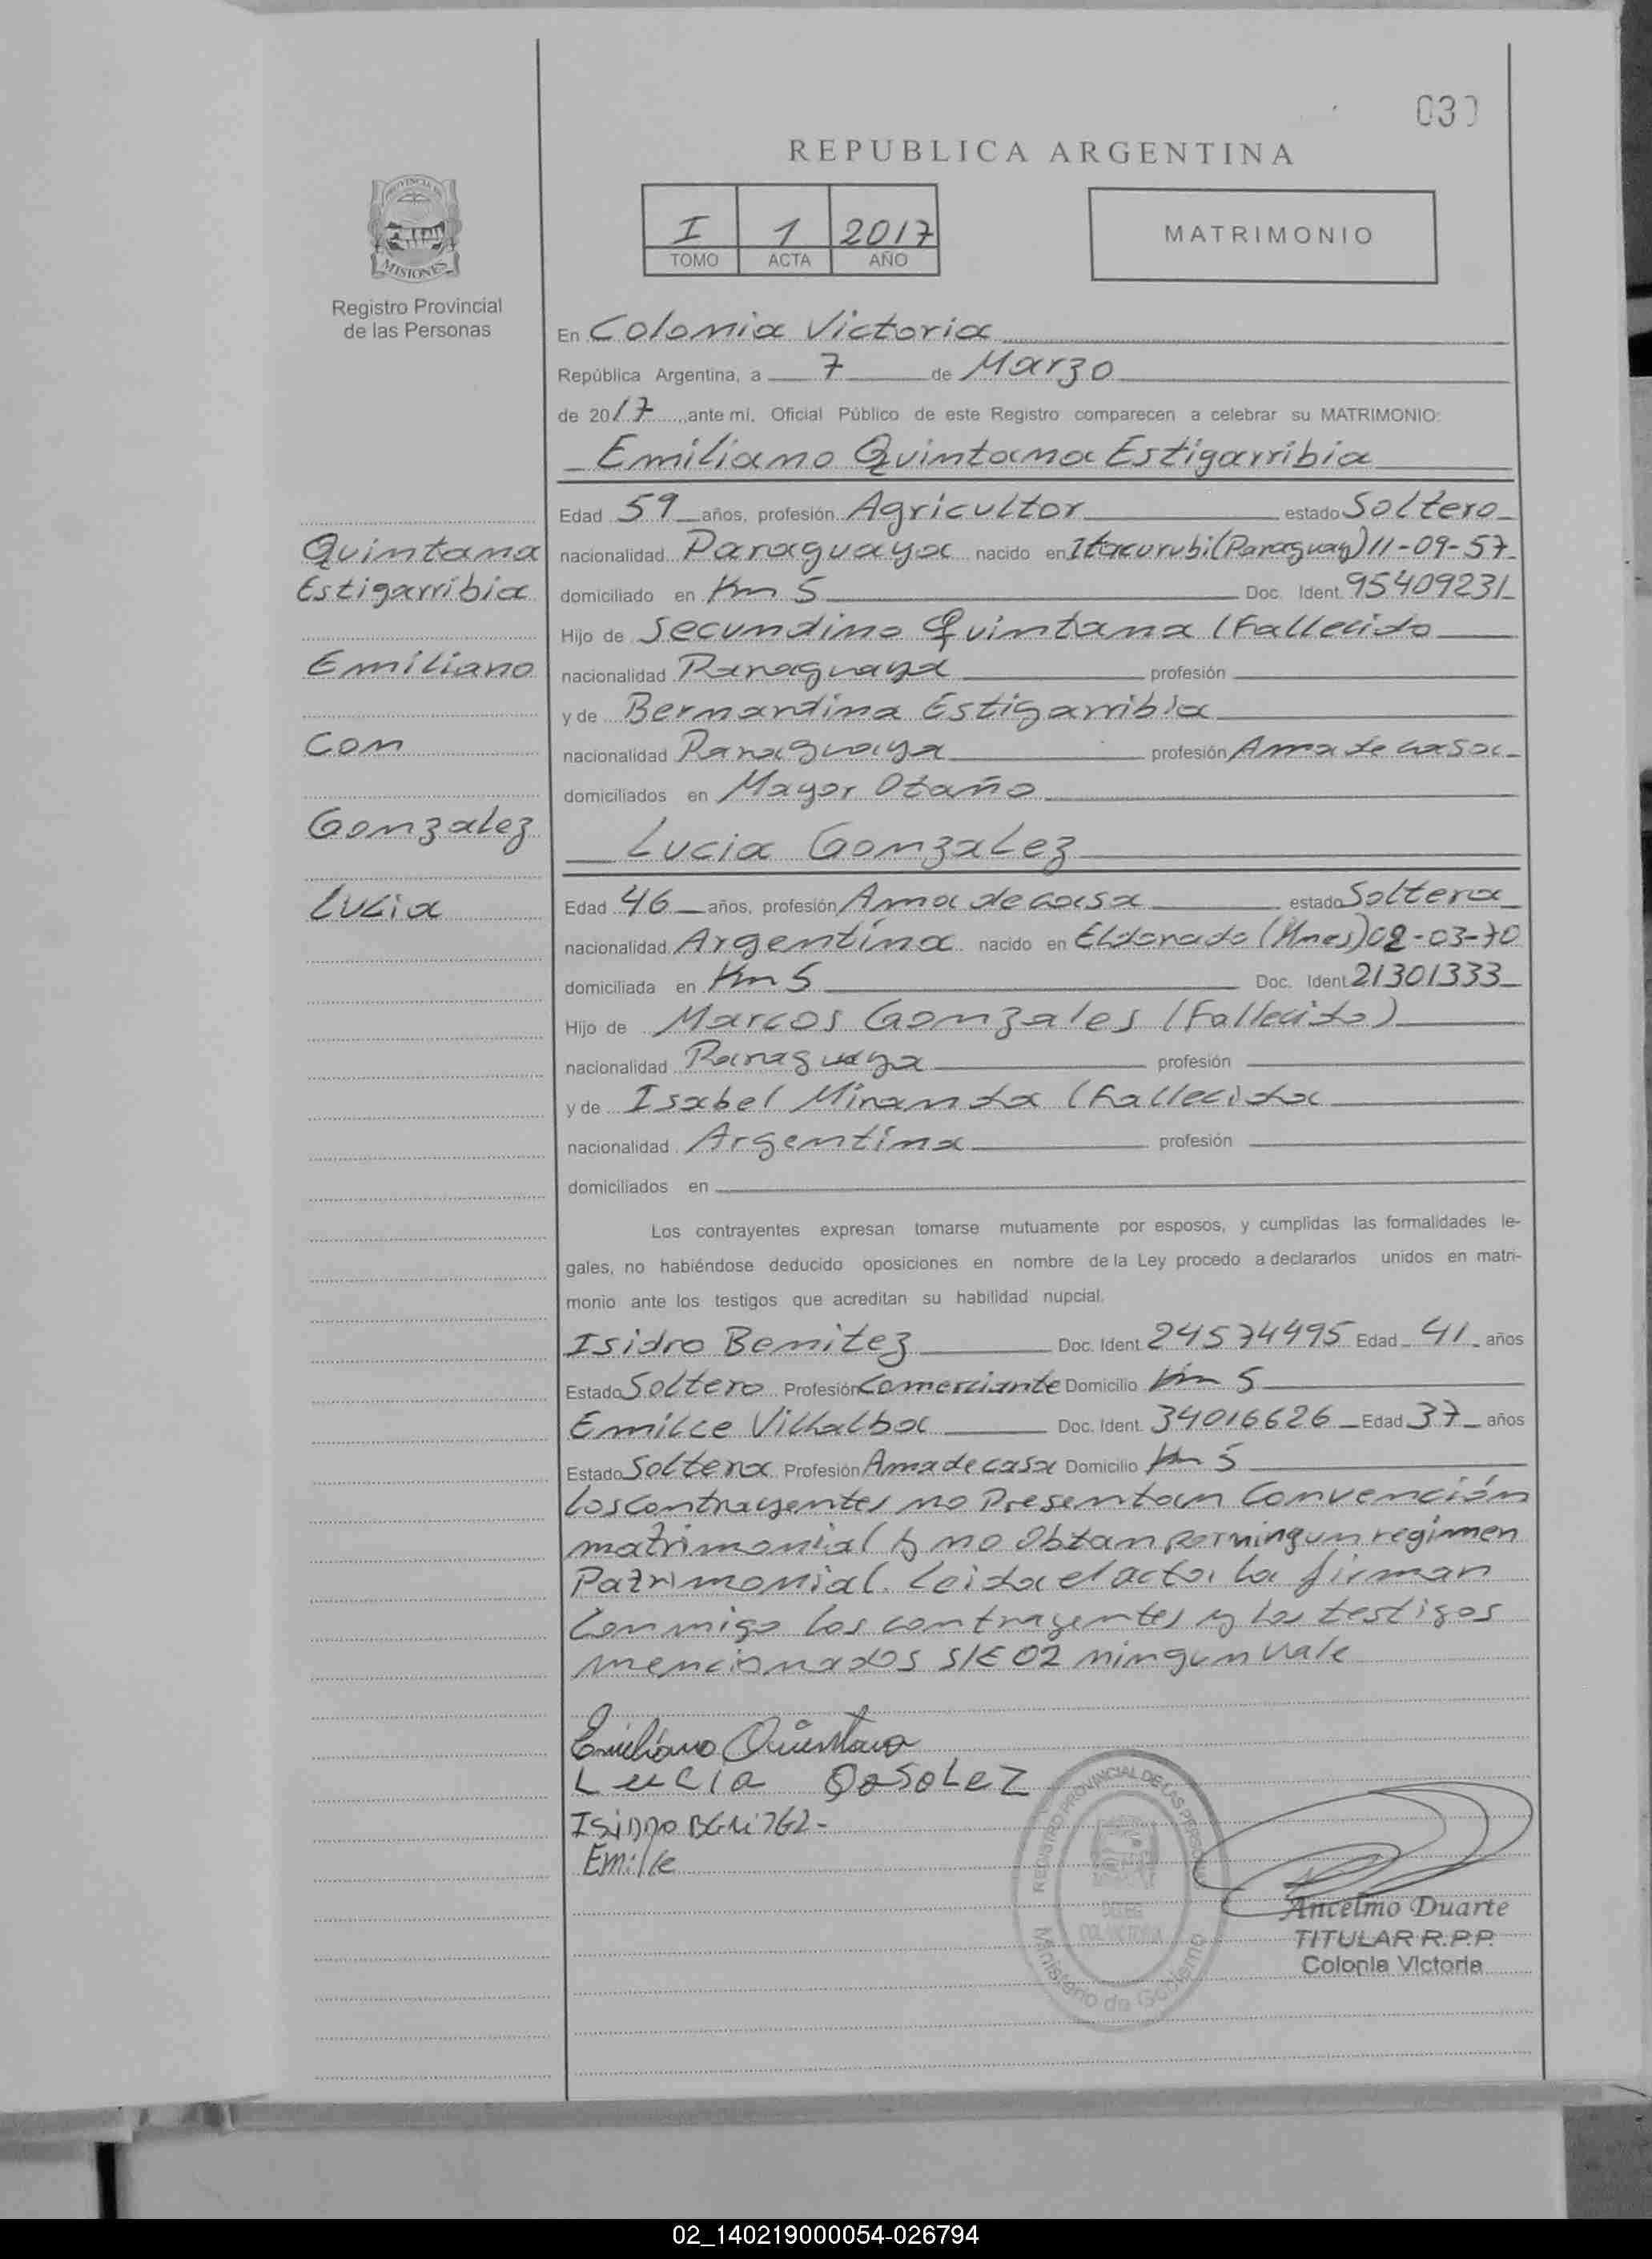 REPUBLICA ARGENTINA
PROVINCIA DE
MISIONES
Registro Provincial
de las Personas
I 1 2017
TOMO ACTA AÑO
MATRIMONIO
Quintana
Estigarribia
Emiliano
con
Gonzalez
Lucia
En Colonia Victoria
República Argentina, a 7 de Marzo
de 2017 ,ante mí, Oficial Público de este Registro comparecen a celebrar su MATRIMONIO:
Emiliano Quintana Estigarribia
Edad 59 años, profesión Agricultor estado Soltero
nacionalidad Paraguaya nacido en Itacurubi (Paraguay) 11-09-57
domiciliado en Km 5 Doc. Ident. 95409231
Hijo de Secundino Quintana (Fallecido
nacionalidad Paraguaya profesión
y de Bernardina Estigarribia
nacionalidad Paraguaya profesión Ama de casa
domiciliados en Mayor Otaño
Lucia Gonzalez
Edad 46 años, profesión Ama de casa estado Soltera
nacionalidad Argentina nacido en Eldorado (Mnes) 02-03-70
domiciliada en Km 5 Doc. Ident. 21301333
Hijo de Marcos Gonzales (Fallecido)
nacionalidad Paraguaya profesión
y de Isabel Miranda (Fallecida
nacionalidad Argentina profesión
domiciliados en
Los contrayentes expresan tomarse mutuamente por esposos, y cumplidas las formalidades le-
gales, no habiéndose deducido oposiciones en nombre de la Ley procedo a declararlos unidos en matri-
monio ante los testigos que acreditan su habilidad nupcial.
Isidro Benitez Doc. Ident. 24574495 Edad 41 años
Estado Soltero Profesión Comerciante Domicilio Km 5
Emilce Villalba Doc. Ident. 34016626 Edad 37 años
Estado Soltera Profesión Ama de casa Domicilio Km 5
Los contrayentes no Presentan Convención
matrimonial y no Obtan por ningun regimen
Patrimonial. Leida el acta, la firman
Conmigo los contrayentes y los testigos
mencionados S/E 02 ningun vale
Emiliano Quintana
Lucia GoSoLeZ
Emilce
REGISTRO PROVINCIAL DE LAS PERSONAS
DELEG.
COL. VICTORIA
Ministerio de Gobierno
Ancelmo Duarte
TITULAR R.P.P.
Colonia Victoria
02_140219000054-026794